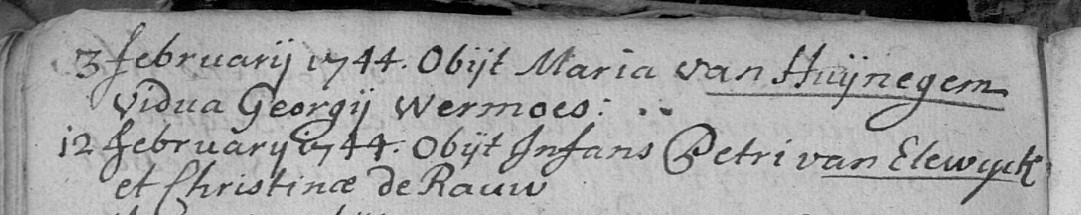 3 februarij 1744. Obijt Maria van Huijnegem
Vidua Georgij Wermoes:
12 februarij 1744. Obijt Infans Petri van Elewyck
et Christinæ de Rauw